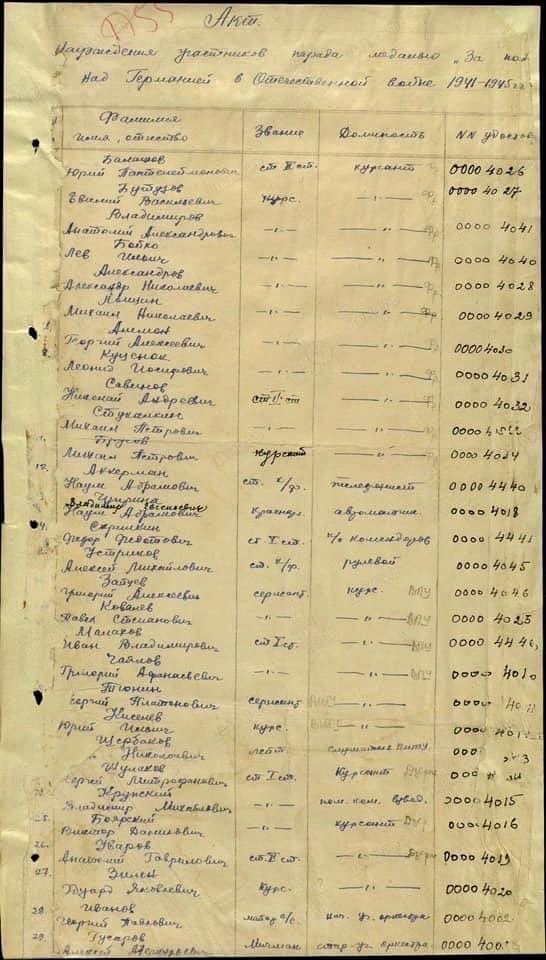 Акт
Награждения участников парада медалью „За поб
над Германией в Отечественной войне 1941–1945 гг
Фамилия
имя, отчество Звание Должность NN удостов
Балашов
Юрий Пантелеймонович ст II ст. курсант 0000 4026
Бутузов
Евгений Васильевич курс. —"— 0000 4027
Владимиров
Анатолий Александрович —"— —"— 0000 4041
Бойко
Лев Ильич —"— —"— 0000 4040
Александров
Александр Николаевич —"— —"— 0000 4028
Михаил Николаевич —"— —"— 0000 4029
Георгий Алексеевич —"— —"— 0000 4030
Куценок
Леонид Иосифович —"— —"— 0000 4031
Савинов
Николай Андреевич ст II ст —"— 0000 4032
Стукалкин
Михаил Петрович —"— —"— 0000
Прусов
Михаил Петрович —"— 0000 4034
12. Аккерман
Наум Абрамович ст. к/ф. 0000 4440
Владимир Евгеньевич
Наум Абрамович краснофл. 0000 4018
Скрипкин
Федор Федотович ст. I ст. к/о комендоров 0000 4441
Устриков
Алексей Михайлович ст. к/ф. рулевой 0000 4045
Зайцев
Григорий Алексеевич сержант курс. ВПУ 0000 4046
Ковалев
Павел Степанович —"— —"— ВПУ 0000 4025
Малахов
Иван Владимирович ст I ст. —"— ВПУ 0000 4446
Чаплов
Григорий Афанасьевич —"— —"— ВПУ 0000 4010
Сергей Платонович сержант ВПУ —"— 0000
Киселев
Юрий Ильич курс. ВПУ —"— 0000
Щербаков
Николаевич лейт слушатель ВИТУ 000
Шулаков
Сергей Митрофанович ст I ст. Курсант 000
Крупский
Владимир Михайлович —"— пом. ком. взвод. 0000 4015
25. Боярский
Виктор Данилович —"— курсант 0000 4016
26. Уваров
Анатолий Гаврилович ст. II ст. —"— 0000 4019
27. Зилен
Эдуард Яковлевич курс. —"— 0000 4020
28. Иванов
Георгий Павлович майор а/с. нач. уч. оркестра 0000 4002
29. Гусаров
Алексей Меркурьевич Мичман стар. уч. оркестра 0000 400